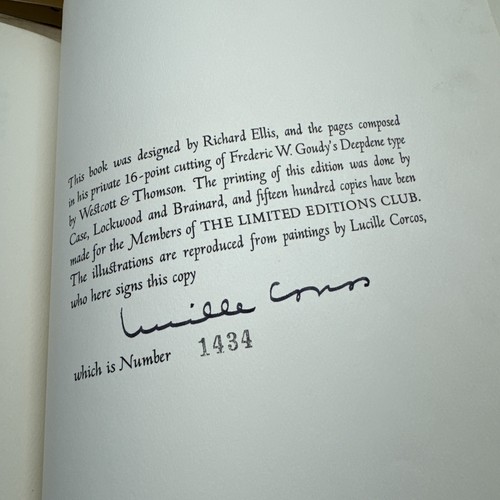 This book was designed by Richard Ellis, and the pages composed
in his private 16-point cutting of Frederic W. Goudy's Deepdene type
by Westcott & Thomson. The printing of this edition was done by
Case, Lockwood and Brainard, and fifteen hundred copies have been
made for the Members of THE LIMITED EDITIONS CLUB.
The illustrations are reproduced from paintings by Lucille Corcos,
who here signs this copy
Lucille Corcos
which is Number 1434